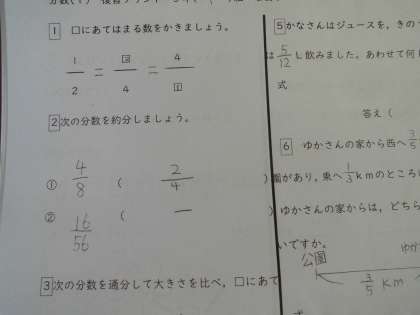 1 □にあてはまる数をかきましょう。
1/2 = □/4 = 4/□
2 次の分数を約分しましょう。
① 4/8 ( 2/4 )
② 16/56 ( — )
3 次の分数を通分して大きさを比べ，□にあて
5 かなさんはジュースを，きの
は 5/12 L飲みました。あわせて何
式
答え（
6 ゆかさんの家から西へ 3/5
園があり，東へ 1/3 kmのところに
ゆかさんの家からは，どちら
いですか。
公園
ゆか
3/5 km